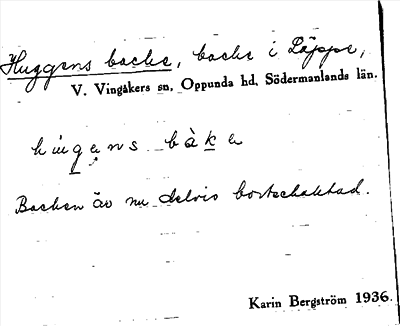 Huggens backe, backe i Läppe,
V. Vingåkers sn, Oppunda hd, Södermanlands län.
hụgẹns bàkẹ
Backen är nu delvis bortschaktad.
Karin Bergström 1936.